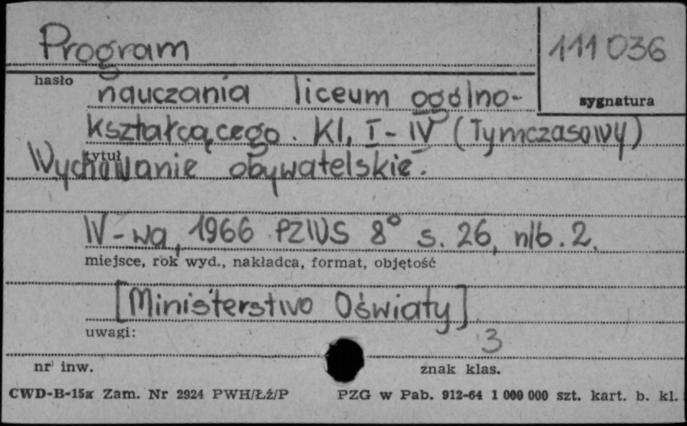 Program
111 036
hasło
sygnatura
nauczania liceum ogólno-
kształcącego. Kl. I-IV (Tymczasowy)
tytuł
Wychowanie obywatelskie.
W-wa, 1966 PZWS 8° s. 26, nlb. 2.
miejsce, rok wyd., nakładca, format, objętość
[Ministerstwo Oświaty]
uwagi:
3
nr inw.
znak klas.
CWD-B-15a Zam. Nr 2924 PWH/Łź/P
PZG w Pab. 912-64 1 000 000 szt. kart. b. kl.